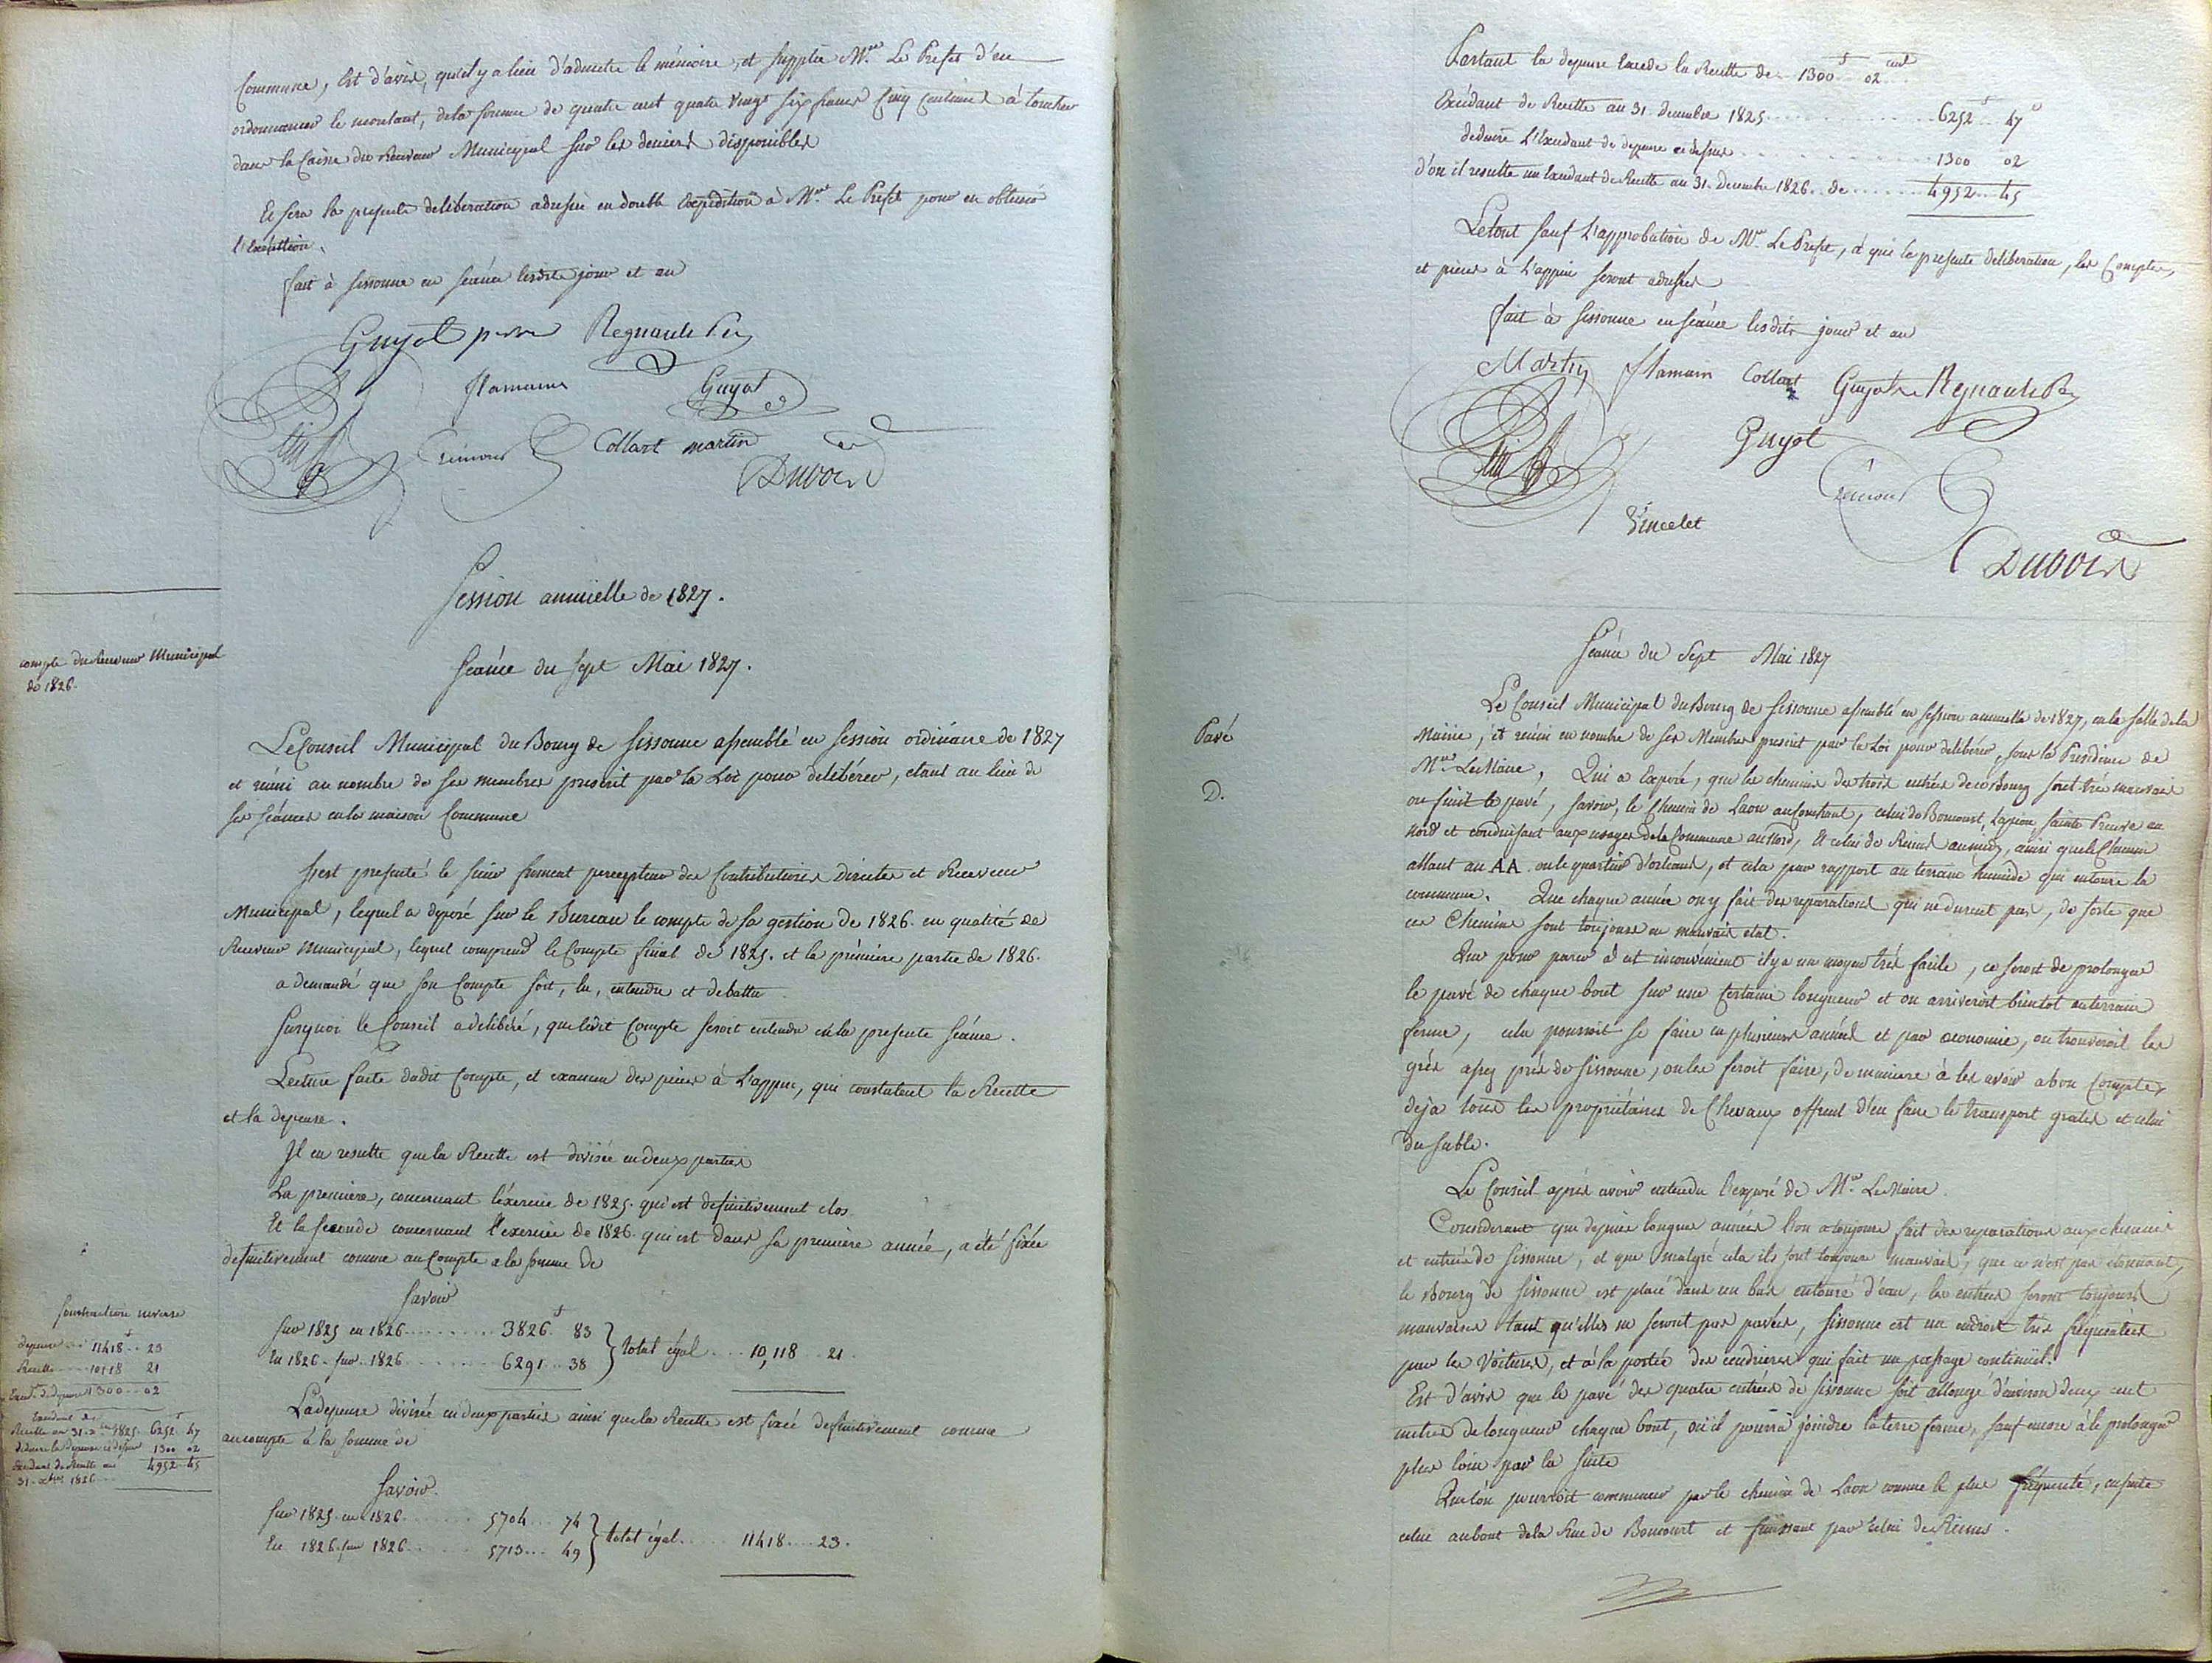 Commune, Est d'avis, qu'il y a lieu d'admettre le mémoire, et supplie Mr. Le Prefet d'en
ordonnancer le montant, de la somme de quatre cent quatre vingt six francs cinq centimes à toucher
dans la Caisse du Receveur Municipal sur les deniers disponibles
Et sera la presente deliberation adressée en double Expedition à Mr. Le Prefet pour en obtenir
l'Exécution.
fait à Sissonne en séance lesdits jour et an
Guyot pierre Regnault
flamain Guyot
Crémont Collart martin
Duvoir
Session annuelle de 1827.
Séance du sept Mai 1827.
compte du Receveur Municipal
de 1826.
Le Conseil Municipal du Bourg de Sissonne assemblé en session ordinaire de 1827
et réuni au nombre de ses membres prescrit par la Loi pour delibérer, etant au lieu de
ses séances en la maison Commune
S'est presenté le sieur froment percepteur des Contributions Directes et Receveur
Municipal, lequel a déposé sur le Bureau le compte de sa gestion de 1826. en qualité de
Receveur Municipal, lequel comprend le Compte final de 1825. et la première partie de 1826.
a demandé que son Compte soit, lu, entendu et debattu
Surquoi le Conseil a delibéré, que ledit Compte seroit entendu en la presente séance.
Lecture faite dudit Compte, et examen des pieces à L'appui, qui constatent la Recette
et la depense.
Il en resulte que la Recette est divisée en deux parties
La premiere, concernant l'éxercice de 1825. qui est definitivement clos
Et la seconde concernant l'exercice de 1826. qui est dans sa première année, a été fixée
definitivement comme au Compte a la somme de
Savoir
Sur 1825 en 1826 ......... 3826.f 83
En 1826. sur 1826 ......... 6291 .. 38 } total égal .... 10,118 ... 21.
La depense divisée en deux parties ainsi que la Recette est fixée definitivement comme
au compte à la somme de
Savoir.
Sur 1825. en 1826 ....... 5704 ... 74
En 1826. sur 1826 ....... 5713 ... 49 } total égal ..... 11418 .... 23.
Soustraction inverse
depense ... 11418 .. 23
Recette ... 10118 21
Exced.t de depense 1300 .. 02
Excedant de
Recette au 31. Xbre 1825. 6252 47
deduire la depense ci dessus 1300 02
Excedant de Recette au 4952 .. 45
31. Xbre 1826
Partant la depense Excede la Recette de .. 1300f .. 02 cent
Excédant de Recette au 31. decembre 1825 ............ 6252f .. 47c
deduire L'Excedant de depense ci dessus ............ 1300 02
d'ou il resulte un Excedant de Recette au 31. Decembre 1826. de ....... 4952 .. 45
Le tout sauf L'approbation de Mr. Le Prefet, à qui la presente deliberation, les Comptes,
et pieces à L'appui seront adressés
fait à Sissonne en séance lesdits jour et an
Martin flamain Collart Guyot Regnault
Guyot
Crémont
Vincelet
Duvoir
Séance du Sept Mai 1827
Pavé
D.
Le Conseil Municipal du Bourg de Sissonne assemblé en session annuelle de 1827, en la salle de la
Mairie, et réuni en nombre de ses Membres prescrit par la Loi pour delibérer, sous la Présidence de
Mr. Le Maire, Qui a Exposé, que les chemins des trois entrées de ce Bourg sont très mauvais
ou finit le pavé, savoir, le Chemin de Laon au Couchant, celui de Boncourt, Lappion, Sainte Preuve au
nord et conduisant aux usages de la Commune au Nord, Et celui de Reims au midi, ainsi que le Chemin
allant au AA ou le quartier d'orleans, et cela par rapport au terrain humide qui entoure la
commune. Que chaque année on y fait des reparations qui ne durent pas, de sorte que
ces Chemins sont toujours en mauvais etat.
Que pour parer à cet inconvénient il y a un moyen trés facile, ce seroit de prolonger
le pavé de chaque bout sur une certaine longueur et on arriveroit bientot au terrain
ferme, cela pourroit se faire en plusieurs années et par œconomie, on trouveroit les
grés assez prés de Sissonne, on les feroit faire, de maniere à les avoir a bon Compte,
deja tous les propriétaires de Chevaux offrent d'en faire le transport gratis et celui
du sable.
Le Conseil aprés avoir entendu l'exposé de Mr. Le Maire.
Considerant que depuis longues années l'on a toujours fait des reparations aux chemins
et entrées de Sissonne, et que malgré cela ils sont toujours mauvais, que ce n'est pas etonnant,
le Bourg de Sissonne est placé dans un bas entouré d'eau, les entrées seront toujours
mauvaises tant qu'elles ne seront pas pavées, Sissonne est un endroit très fréquentée
par les Voitures, et à la portée des cendrieres qui fait un passage continüel.
Est d'avis que le pavé des quatre entrées de Sissonne soit allongé d'environ deux cent
metres de longueur chaque bout, où il pourra joindre la terre ferme, sauf encore à le prolonger
plus loin par la suite
Que l'on pourroit commencer par le chemin de Laon comme le plus fréquenté, ensuite
celui au bout de la Rue de Boncourt et finissant par Celui de Reims.